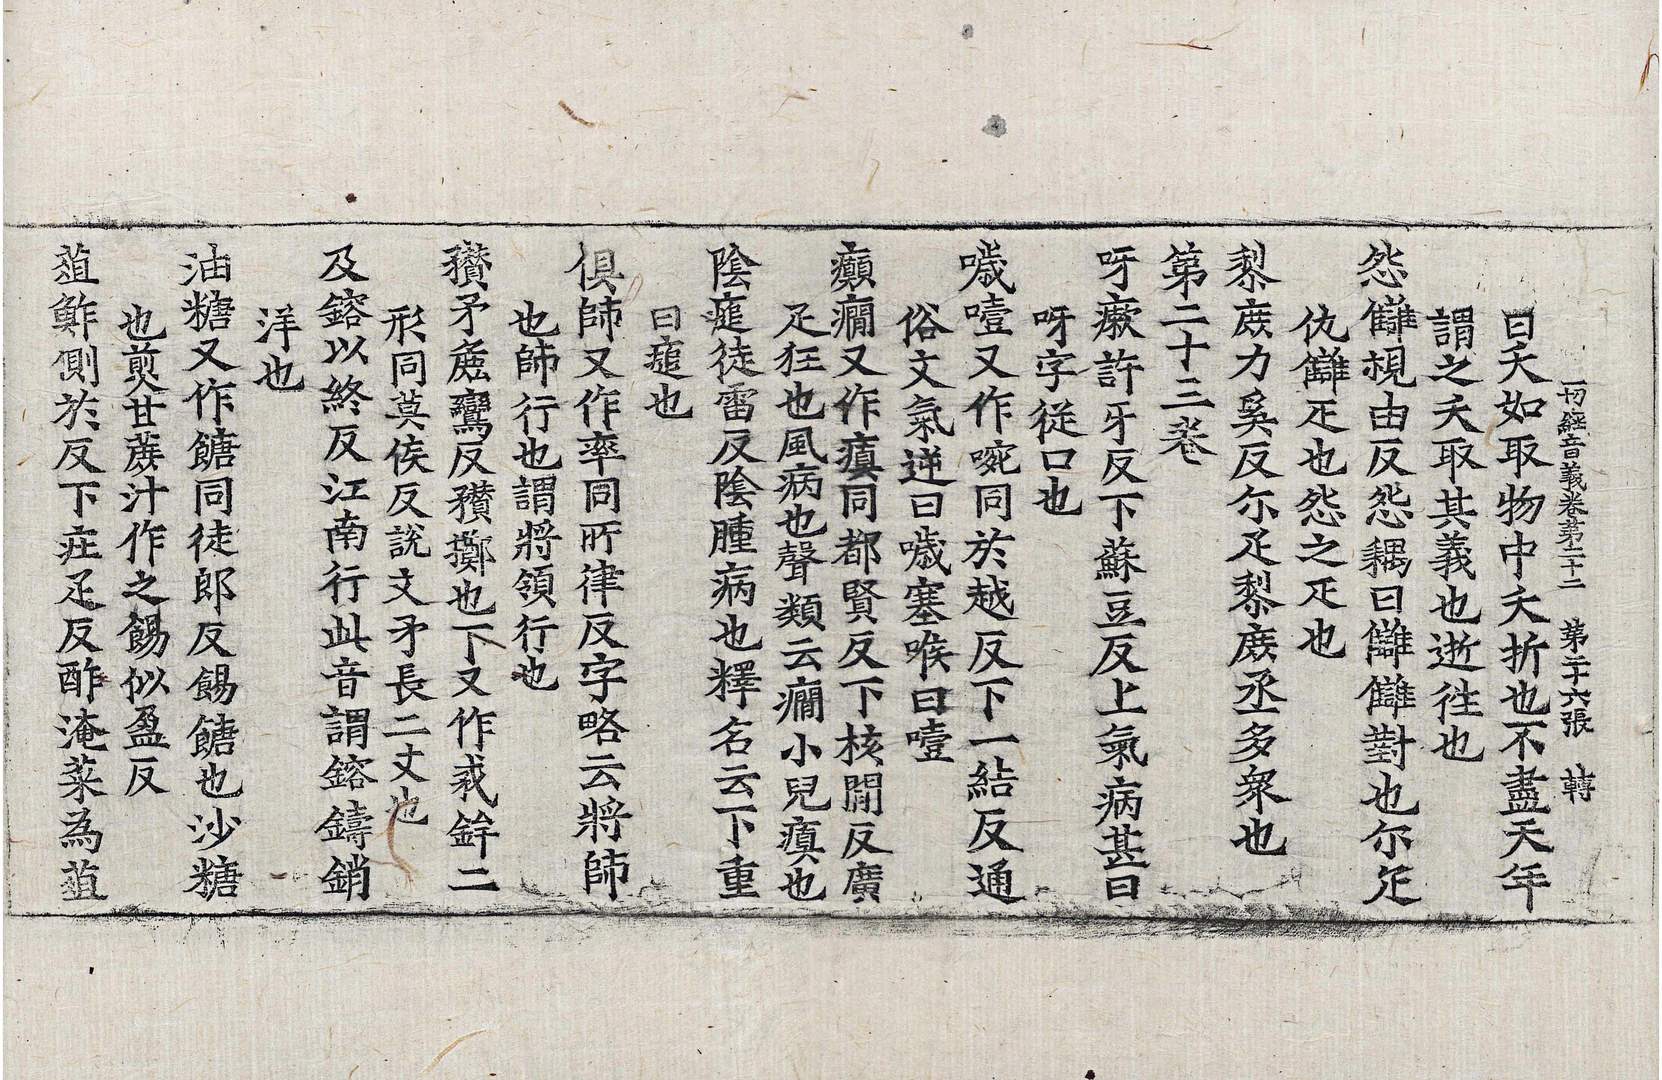 一切經音義卷第二十二　第二十六張　轉
曰夭如取物中夭折也不盡天年
謂之夭取其義也逝往也
怨讎視由反怨耦曰讎讎對也尒疋
仇讎疋也怨之疋也
黎庶力奚反尒疋黎庶丞多衆也
第二十三卷
呀嗽許牙反下蘇豆反上氣病甚曰
呀字從口也
噦噎又作㖧同於越反下一結反通
俗文氣逆曰噦塞喉曰噎
癲癇又作瘨同都賢反下核閒反廣
疋狂也風病也聲類云癇小兒瘨也
陰㿉徒雷反陰腫病也釋名云下重
曰㿉也
俱帥又作率同所律反字略云將帥
也帥行也謂將領行也
矟矛麁鸞反矟擲也下又作㦵鉾二
形同莫侯反說文矛長二丈也
及鎔以終反江南行此音謂鎔鑄銷
洋也
油糖又作餹同徒郎反餳餹也沙糖
也煎甘蔗汁作之餳似盈反
葅鮓側於反下庄疋反酢淹菜為葅